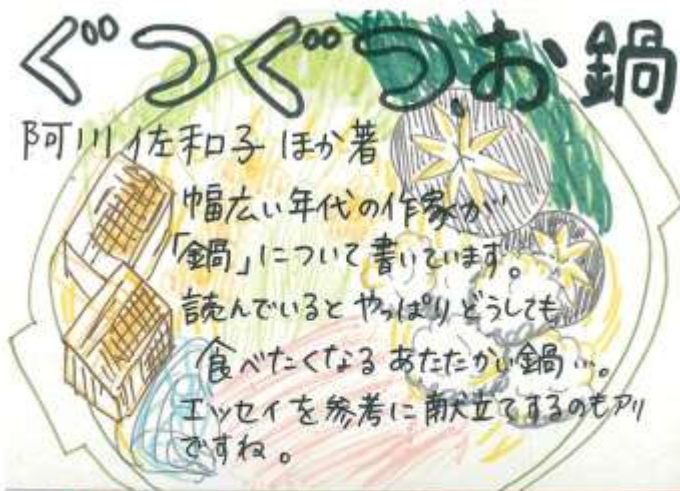 ぐつぐつ、お鍋
阿川佐和子 ほか著
幅広い年代の作家が
「鍋」について書いています。
読んでいると やっぱりどうしても
食べたくなる あたたかい鍋…。
エッセイを参考に献立てするのもアリ
ですね。